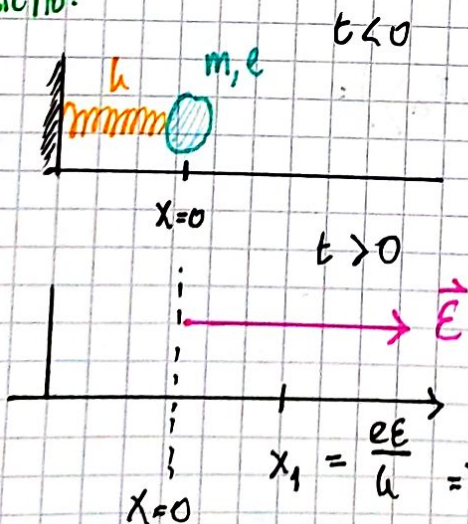 t < 0
k
m, e
x=0
t > 0
→
Ɛ
x₁ = eƐ/k =
x=0